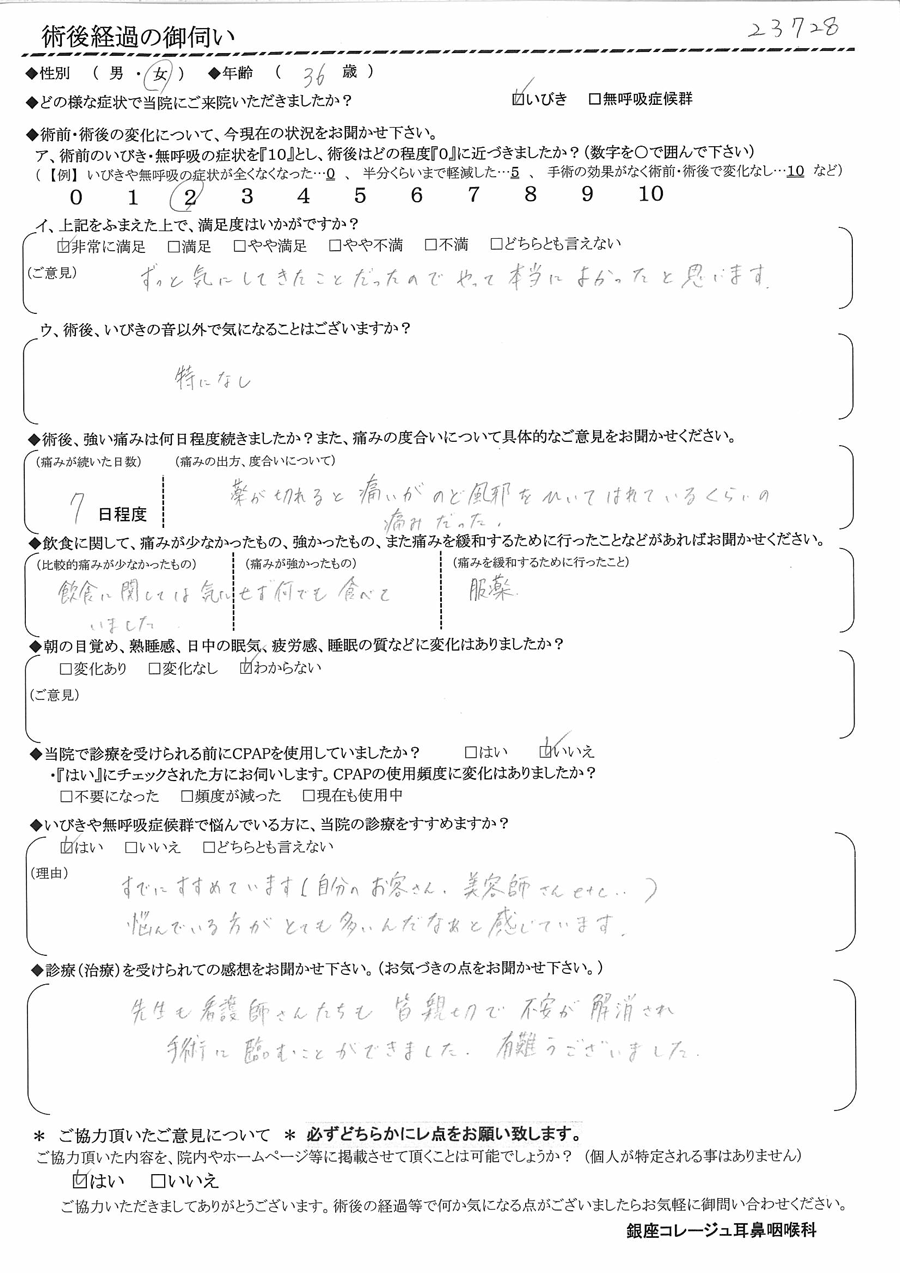 術後経過の御伺い 23728
◆性別 ( 男 ・ 女 ) ◆年齢 ( 36 歳 )
◆どの様な症状で当院にご来院いただきましたか? ☑いびき □無呼吸症候群
◆術前・術後の変化について、今現在の状況をお聞かせ下さい。
ア、術前のいびき・無呼吸の症状を『10』とし、術後はどの程度『0』に近づきましたか?(数字を○で囲んで下さい)
(【例】いびきや無呼吸の症状が全くなくなった…0 、 半分くらいまで軽減した…5 、 手術の効果がなく術前・術後で変化なし…10 など)
0 1 2 3 4 5 6 7 8 9 10
イ、上記をふまえた上で、満足度はいかがですか?
☑非常に満足 □満足 □やや満足 □やや不満 □不満 □どちらとも言えない
(ご意見) ずっと気にしてきたことだったのでやって本当によかったと思います。
ウ、術後、いびきの音以外で気になることはございますか?
特になし
◆術後、強い痛みは何日程度続きましたか?また、痛みの度合いについて具体的なご意見をお聞かせください。
(痛みが続いた日数) (痛みの出方、度合いについて)
7 日程度 薬が切れると痛いがのど風邪をひいてはれているくらいの
痛みだった。
◆飲食に関して、痛みが少なかったもの、強かったもの、また痛みを緩和するために行ったことなどがあればお聞かせください。
(比較的痛みが少なかったもの) (痛みが強かったもの) (痛みを緩和するために行ったこと)
飲食に関しては気にせず何でも食べて 服薬
いました
◆朝の目覚め、熟睡感、日中の眠気、疲労感、睡眠の質などに変化はありましたか?
□変化あり □変化なし ☑わからない
(ご意見)
◆当院で診療を受けられる前にCPAPを使用していましたか? □はい ☑いいえ
・『はい』にチェックされた方にお伺いします。CPAPの使用頻度に変化はありましたか?
□不要になった □頻度が減った □現在も使用中
◆いびきや無呼吸症候群で悩んでいる方に、当院の診療をすすめますか?
☑はい □いいえ □どちらとも言えない
(理由) すでにすすめています(自分のお客さん、美容師さんetc..)
悩んでいる方がとても多いんだなぁと感じています。
◆診療(治療)を受けられての感想をお聞かせ下さい。(お気づきの点をお聞かせ下さい。)
先生も看護師さんたちも皆親切で不安が解消され
手術に臨むことができました。有難うございました。
* ご協力頂いたご意見について * 必ずどちらかにレ点をお願い致します。
ご協力頂いた内容を、院内やホームページ等に掲載させて頂くことは可能でしょうか? (個人が特定される事はありません)
☑はい □いいえ
ご協力いただきましてありがとうございます。術後の経過等で何か気になる点がございましたらお気軽に御問い合わせください。
銀座コレージュ耳鼻咽喉科